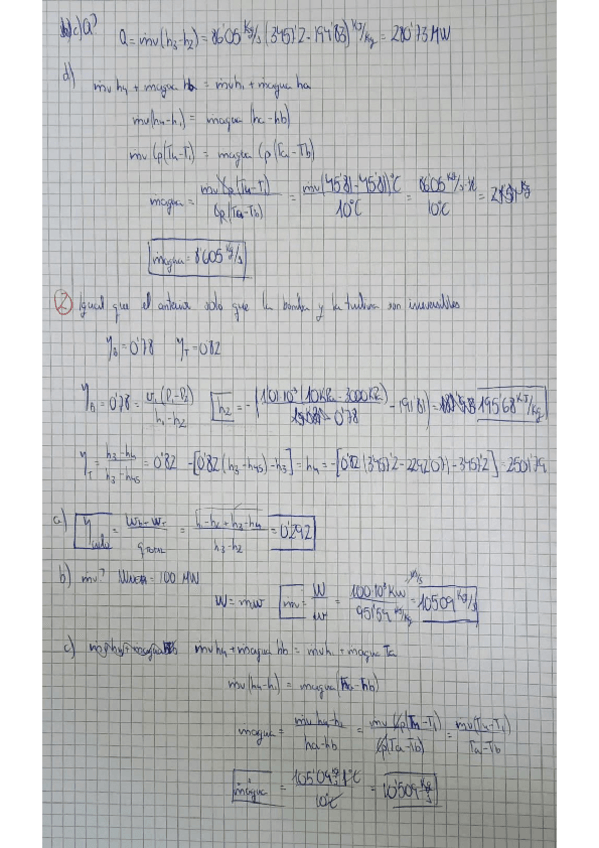 c) Q?
Q = ṁv(h3-h2) = 86'05 kg/s (3457'2 - 194'83) kJ/kg = 280'73 MW
d)
ṁv h4 + ṁagua hb = ṁv h1 + ṁagua ha
ṁv(h4-h1) = ṁagua (ha-hb)
ṁv Cp(T4-T1) = ṁagua Cp(Ta-Tb)
ṁagua = ṁv Cp(T4-T1) / Cp(Ta-Tb) = ṁv(45'81-45'81)°C / 10°C = 86'05 kg/s / 10°C =
ṁagua = 8'605 kg/s
2 Igual que el anterior solo que la bomba y la turbina son irreversibles
ηB = 0'78 ηT = 0'82
ηB = 0'78 = v1(P1-P2) / h1-h2 h2 = -( 1'01·10⁻³ (10KPa - 3000KPa) / 0'78 - 191'81) = 195'68 KJ/kg
ηT = h3-h4 / h3-h4s = 0'82 -[0'82(h3-h4s)-h3] = h4 = -[0'82(3457'2-2292'07)-3457'2] = 2501'79
a) = WB+WT / qTOTAL = h1-h2+h3-h4 / h3-h2 = 0'292
b) ṁv? = 100 MW
W = mw m = W / w = 100·10³ KW / 951'54 KJ/kg = 105'09 kg/s
c) ṁv h4 + ṁagua hb = ṁv h1 + ṁagua
ṁv(h4-h1) = ṁagua( -hb)
ṁagua = / ha-hb = ṁv Cp(T4-T1) / Cp(Ta-Tb) = ṁv(T4-T1) / Ta-Tb
ṁagua = 105'09 1°C / 10°C = 10'509 kg/s